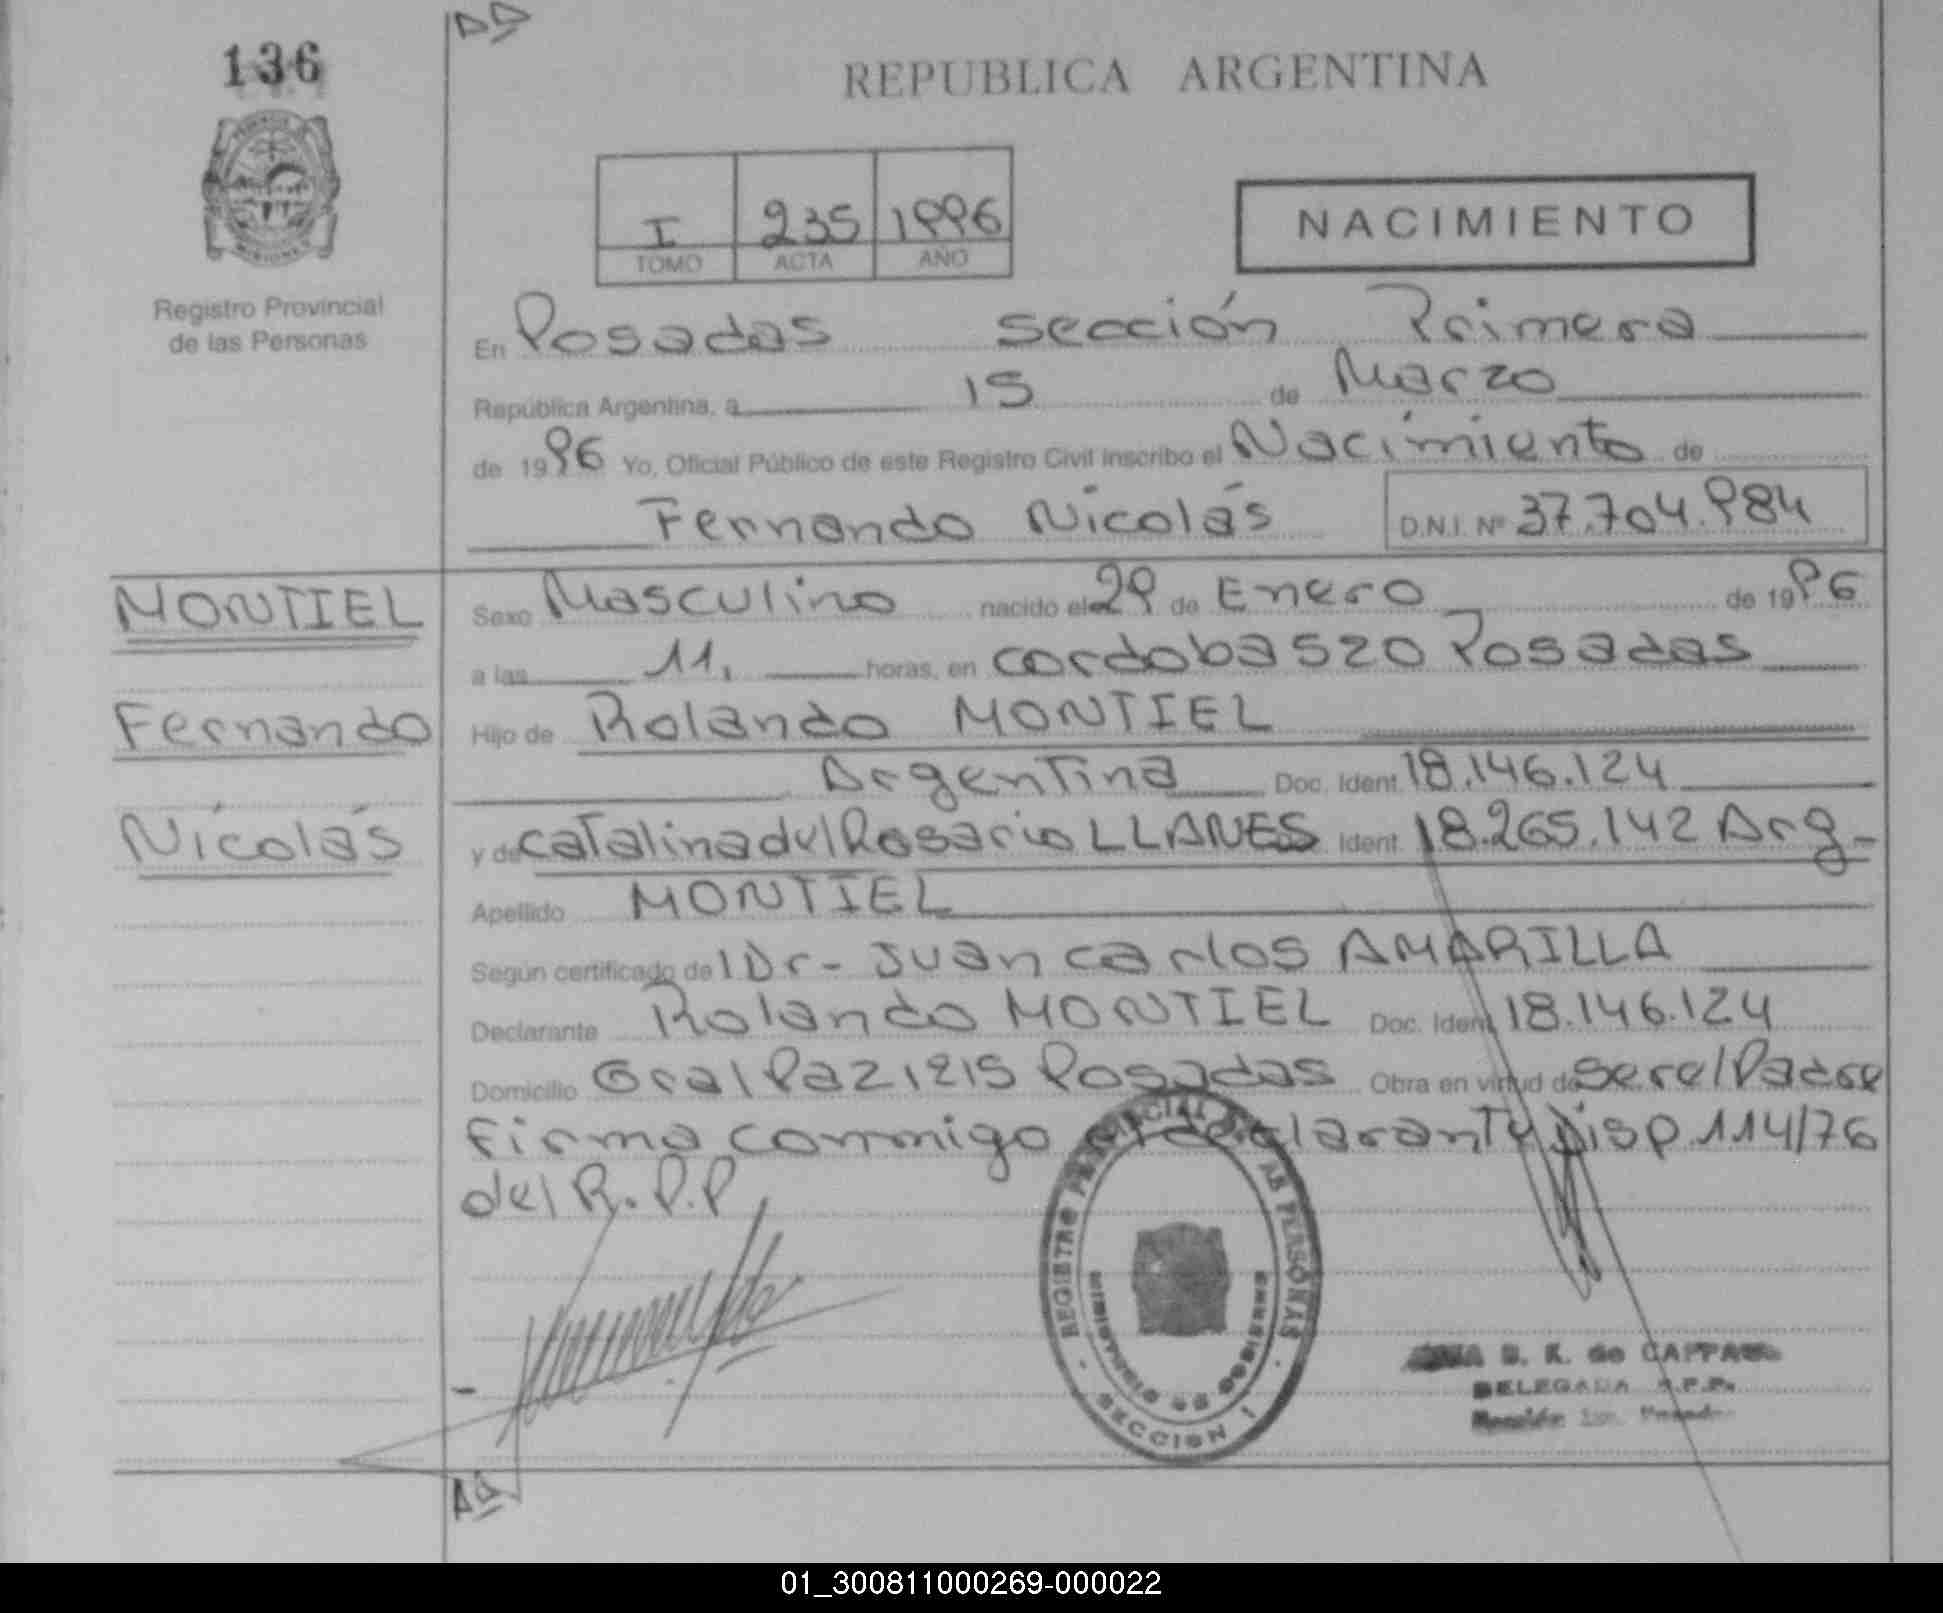 136
REPUBLICA ARGENTINA
I 235 1996
TOMO ACTA AÑO
NACIMIENTO
Registro Provincial
de las Personas
En Posadas sección Primera
República Argentina, a 15 de Marzo
de 1996 Yo, Oficial Público de este Registro Civil inscribo el Nacimiento de
Fernando Nicolás D.N.I. Nº 37.704.984
MONTIEL
Fernando
Nicolás
Sexo Masculino nacido el 29 de Enero de 1996
a las 11, horas, en cordoba 520 Posadas
Hijo de Rolando MONTIEL
Argentina Doc. Ident. 18.146.124
y de catalina del Rosario LLANES Ident. 18.265.142 Arg-
Apellido MONTIEL
Según certificado de l Dr- Juan carlos AMARILLA
Declarante Rolando MONTIEL Doc. Ident. 18.146.124
Domicilio Gral Paz 1215 Posadas Obra en virtud de ser el Padre
firma conmigo el declarante Disp 114/76
del R.P.P
REGISTRO PROVINCIAL DE LAS PERSONAS
MINISTERIO DE GOBIERNO
SECCION 1
S. K. de
DELEGADA R.P.P.
Sección
01_300811000269-000022